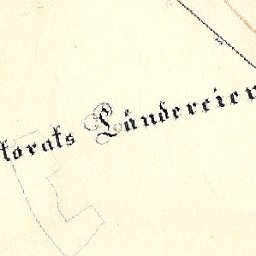 torats Ländereien